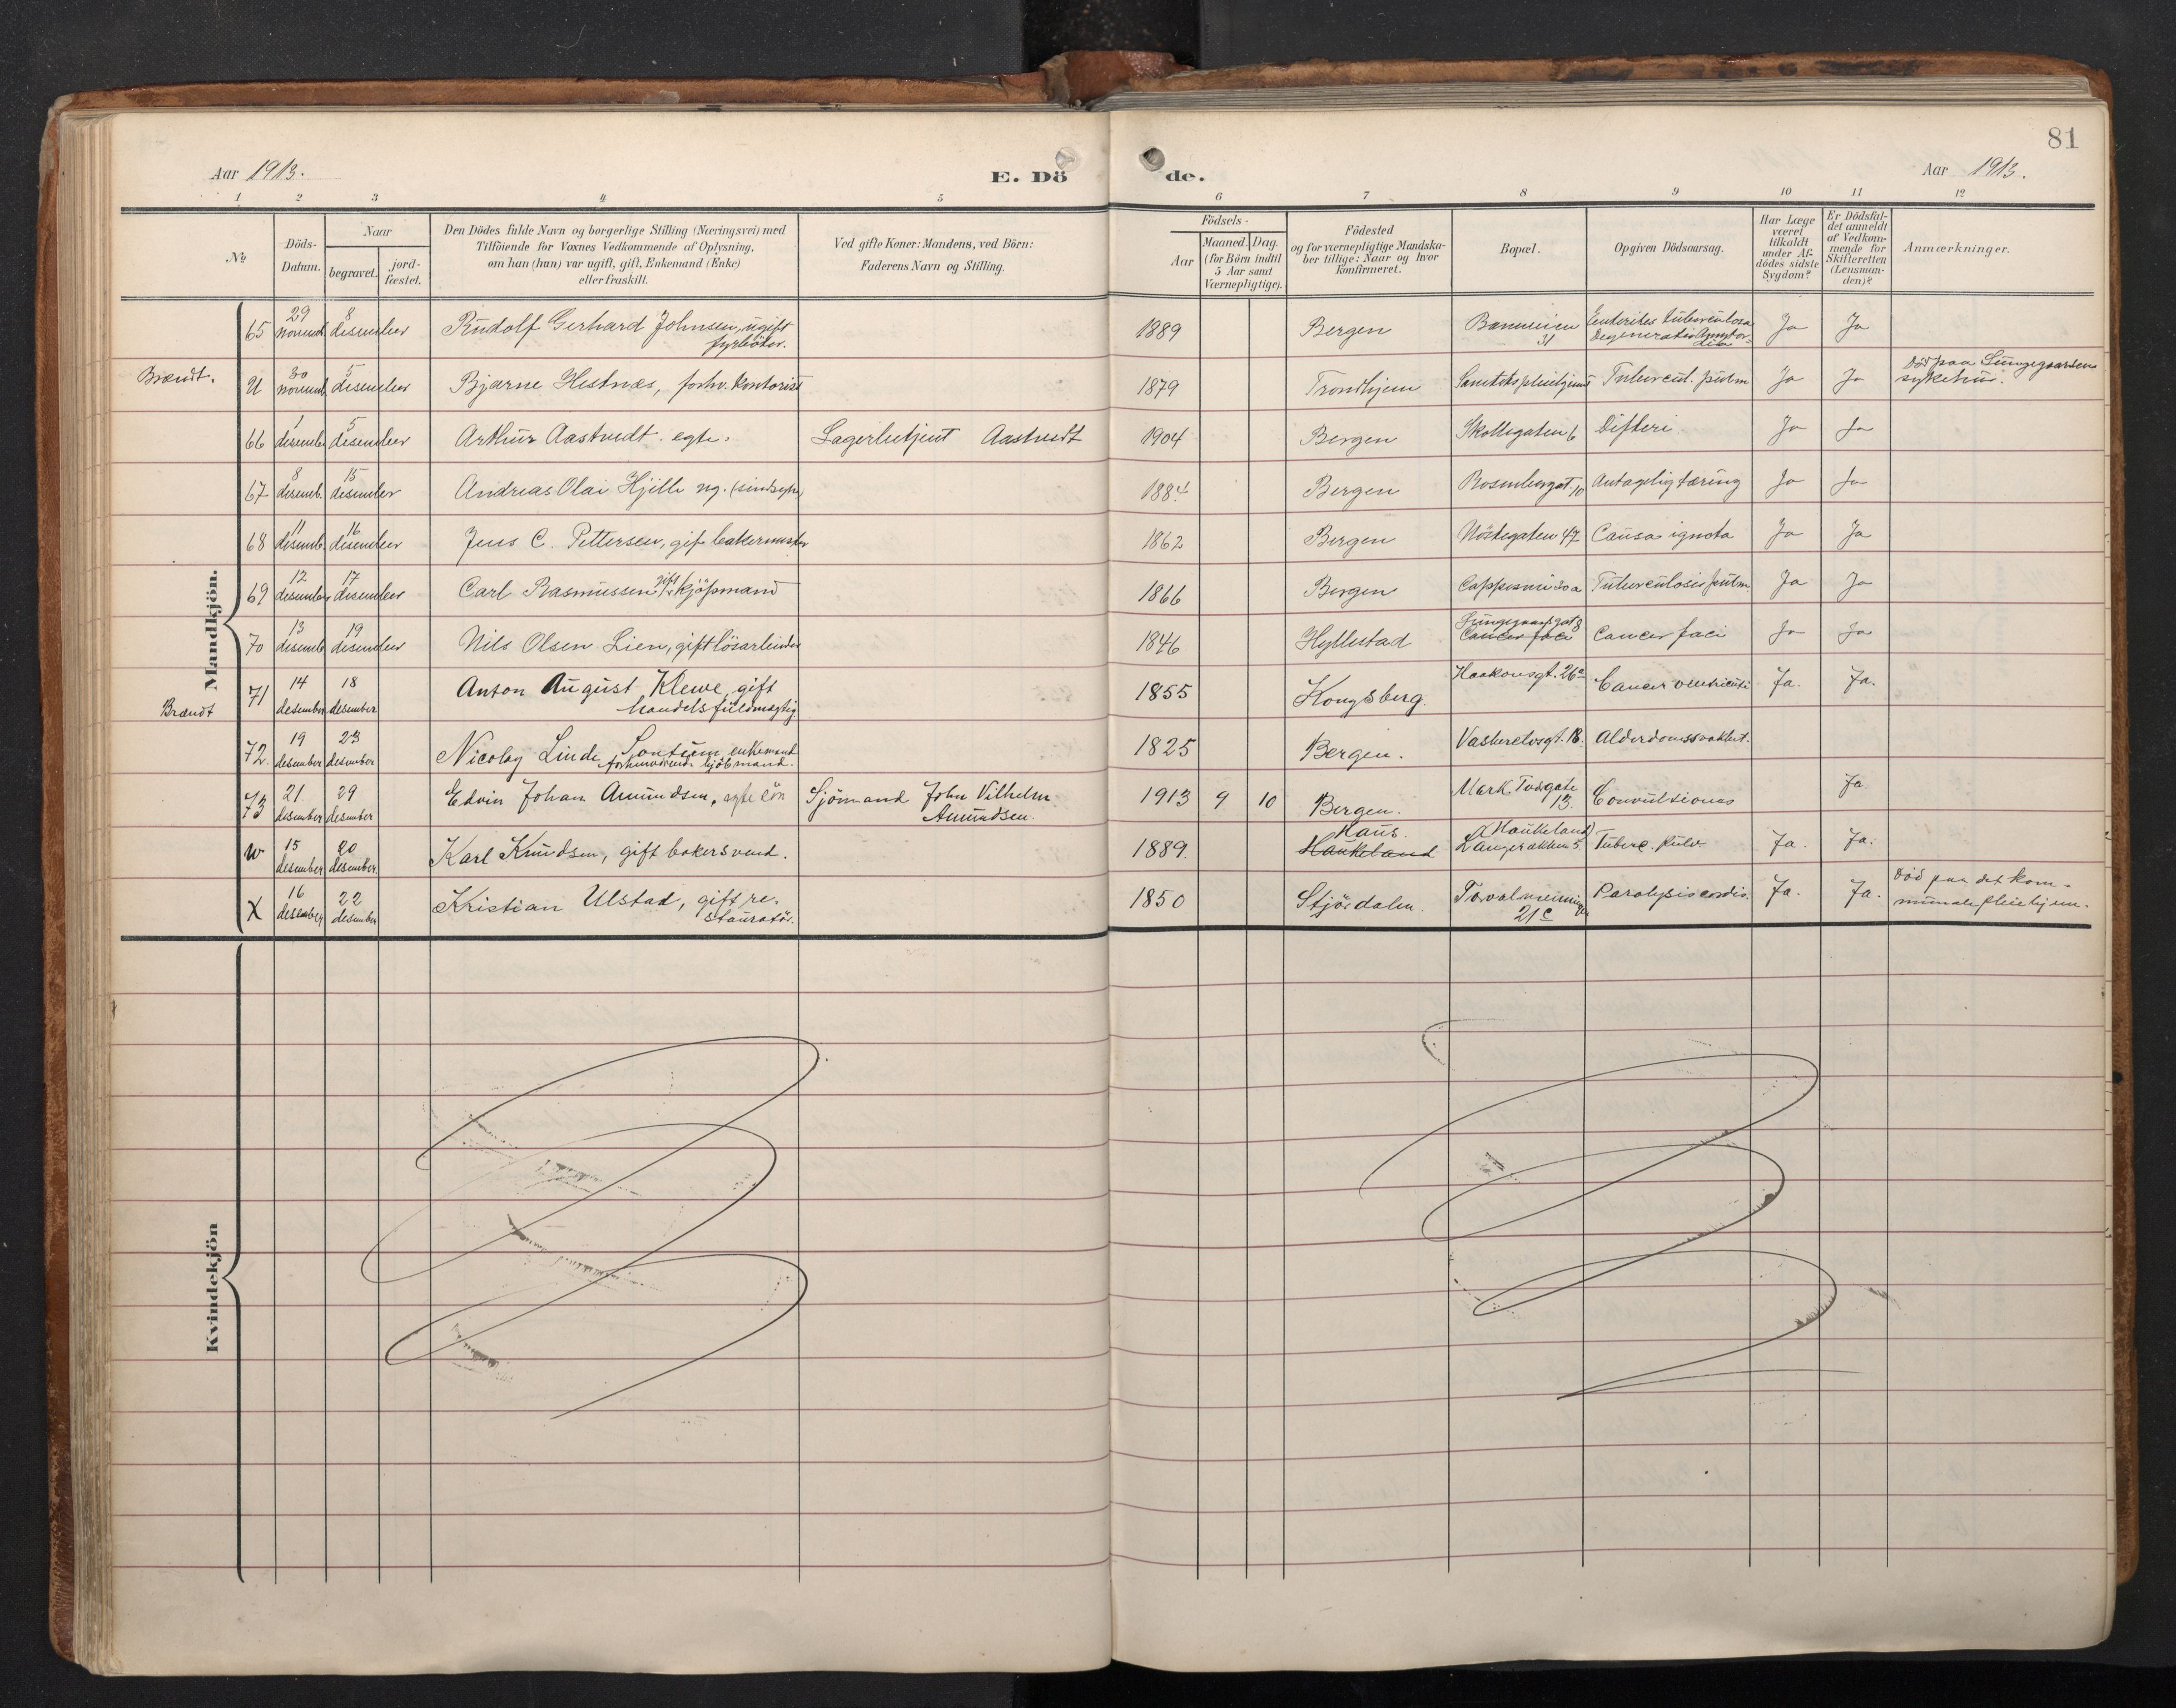 81
Aar 1913.
E. Dö de.
Aar 1913.
1 2 3 4 5 6 7 8 9 10 11 12
No
Döds-Datum.
Naar
begravet. jord-fæstet.
Den Dödes fulde Navn og borgerlige Stilling (Næringsvei) med
Tilföiende for Voxnes Vedkommende af Oplysning,
om han (hun) var ugift, gift, Enkemand (Enke)
eller fraskilt.
Ved gifte Koner: Mandens, ved Börn:
Faderens Navn og Stilling.
Födsels-
Aar
Maaned. Dag.
(for Börn indtil
5 Aar samt
Værnepligtige).
Födested
og for værnepligtige Mandska-
ber tillige: Naar og hvor
konfirmeret.
Bopæl.
Opgiven Dödsaarsag.
Har Læge
været
tilkaldt
under Af-
dödes sidste
Sygdom?
Er Dödsfal-
det anmeldt
af Vedkom-
mende for
Skifteretten
(Lensman-
den)?
Anmærkninger.
Mandkjön.
65 29 novemb. 8 desember Rudolf Gerhard Johnsen, ugift fyrböter. 1889 Bergen 31 Ja Ja
Brændt. U 30 novemb. 5 desember Bjarne Hestnæs, forhv. kontorist 1879 Trondhjem Tubercul. pulm Ja Ja Död paa Lungegaardens sykehus.
66 1 desember 5 desember Arthur Aastvedt. egte. Lagerbetjent Aastvedt 1904 Bergen Skottegaten 6 Difteri. Ja Ja
67 8 desemb. 15 desember Andreas Olai Hjelle ug. (sindsyk) 1884 Bergen Rosenbergt. 10 Antagelig tæring Ja Ja
68 11 desemb. 16 desember Jens C. Pettersen, gift bakermester 1862 Bergen Nöstegaten 47 Causa ignota Ja Ja
69 12 desember 17 desember Carl Rasmussen gift kjöpmand 1866 Bergen Tuberculosis pulm. Ja Ja
70 13 desemb. 19 desember Nils Olsen Lien, gift lösarbeider 1846 Hyllestad Lungegaardsgat 8 Cancer faci Cancer faci Ja Ja
Brændt 71 14 desember 18 desember Anton August Klewe, gift handelsfuldmægtig 1855 Kongsberg. Haakonsgt. 26a Cancer ventriculi Ja. Ja.
72. 19 desember 23 desember Nicolay Linde Sontum, enkemand forhenværende kjöbmand. 1825 Bergen. Vaskerelvsgt. 18. Alderdomssvakhet.
73 21 desember 29 desember Edvin Johan Amundsen, egte sön Sjömand John Vilhelm Amundsen. 1913 9 10 Bergen. 13. Convulsiones Ja.
W 15 desember 20 desember Karl Knudsen, gift bakersvend. 1889. Haus. Haukeland (Haukeland) Tuberc. pulm. Ja. Ja.
X 16 desember 22 desember Kristian Ulstad, gift restauratör. 1850 Stjördalen. Torvalmenningen 21c Paralysis cordis. Ja. Ja. Död paa det kommunale pleiehjem.
Kvindekjön